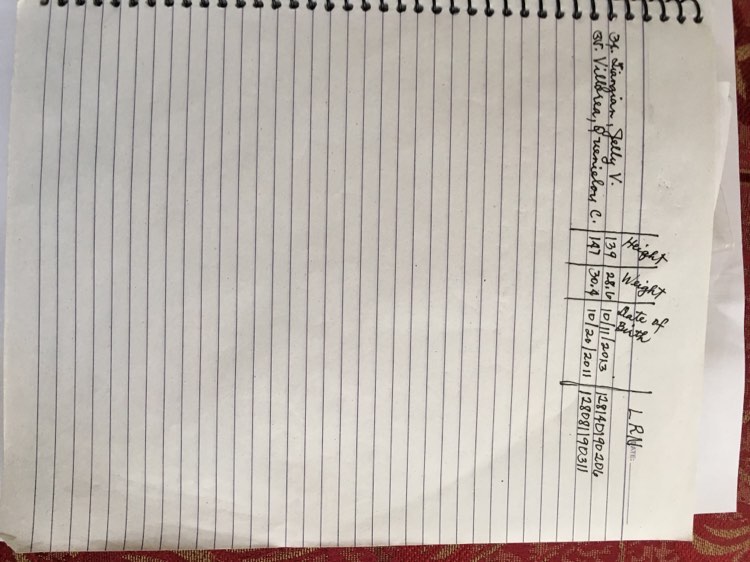 Height Weight Date of Birth LRN DATE:
Liangian, Jelly V. 139 28.6 10/11/2013 128140190206
Villarea, C. 147 30.4 10/20/2011 128081190311